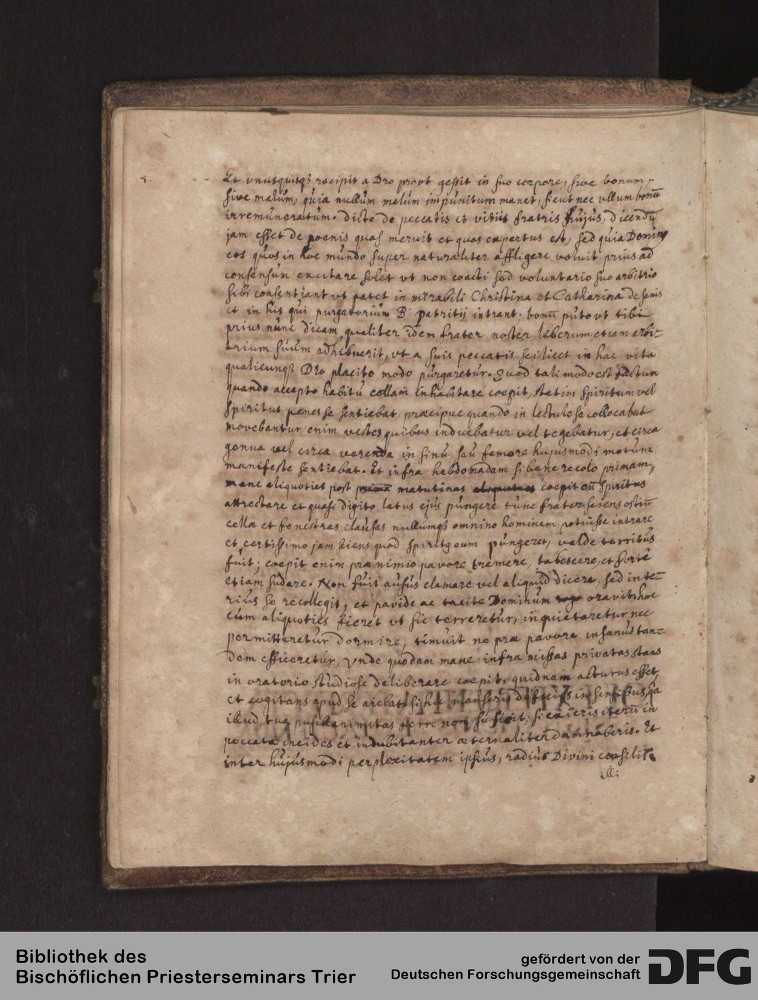 Et unusquisqз recipit a Dro provt gessit in suo corpore, sive bonum,
sive malum, quia nullum malum impunitum manet, sicut nec ullum bonū
irremuneratum. Dicto de peccatis et vitiis fratris hujus, dicendū
jam esset de poenis quas meruit et quas expertus est, sed quia Dominꝰ
eos quos in hoc mundo super naturaliter affligere voluit prius ad
consensum excitare solet ut non coacti sed voluntario suo arbitrio
sibi consentiant ut patet in mirabili Christina et Catharina de Senis
et in his qui purgatorium B. Patritij intrant. bonū puto ut tibi
prius nunc dicam, qualiter idem frater noster liberum etiam arbi-
trium suum adhibuerit, ut a suis peccatis scilicet in hac vita
qualicunqз Dro placito modo purgaretur. Quod tali modo est factum
quando accepto habitu cellam inhabitare coepit, statim Spiritum vel
Spiritus penes se sentiebat, praecipue quando in lectulo se collocabat
movebantur enim vestes quibus induebatur vel tegebatur, et circa
genua vel circa verenda in sinu seu femore hujusmodi motum
manifeste sentiebat. Et infra habdomadam si bene recolo primam,
mane aliquoties post matutinas coepit eū Spiritus
attrectare et quasi digito latus ejus pungere tunc frater sciens ostiū
cellae et fenestras clausas nullumqз omnino hominem potuisse intrare
et certissimo jam sciens quod Spiritꝰ eum pungeret, valde territus
fuit; coepit enim prae nimio pavore tremere, tabescere, et forte
etiam sudare. Non fuit ausus clamare vel aliquid dicere, sed inte-
rius se recollegit, et pavide ac tacite Dominum oravit hoc
cum aliquoties fieret ut sic terreretur, inquietaretur nec
permitteretur dormire, timuit ne prae pavore insanus tan-
dem efficeretur, unde quodam mane infra missas privatas stans
in oratorio studiose deliberare coepit, quidnam acturus esset,
et cogitans apud se aiebat, si hic manseris deficies in sensibus qa
illud tua pusillanimitas ferre non sufficit. Si exieris iterum in
peccata incides et indubitanter aeternaliter damnaberis. Et
inter hujusmodi perplexitatem ipsius, radius Divini consilij
illi
Bibliothek des
Bischöflichen Priesterseminars Trier
gefördert von der
Deutschen Forschungsgemeinschaft
DFG